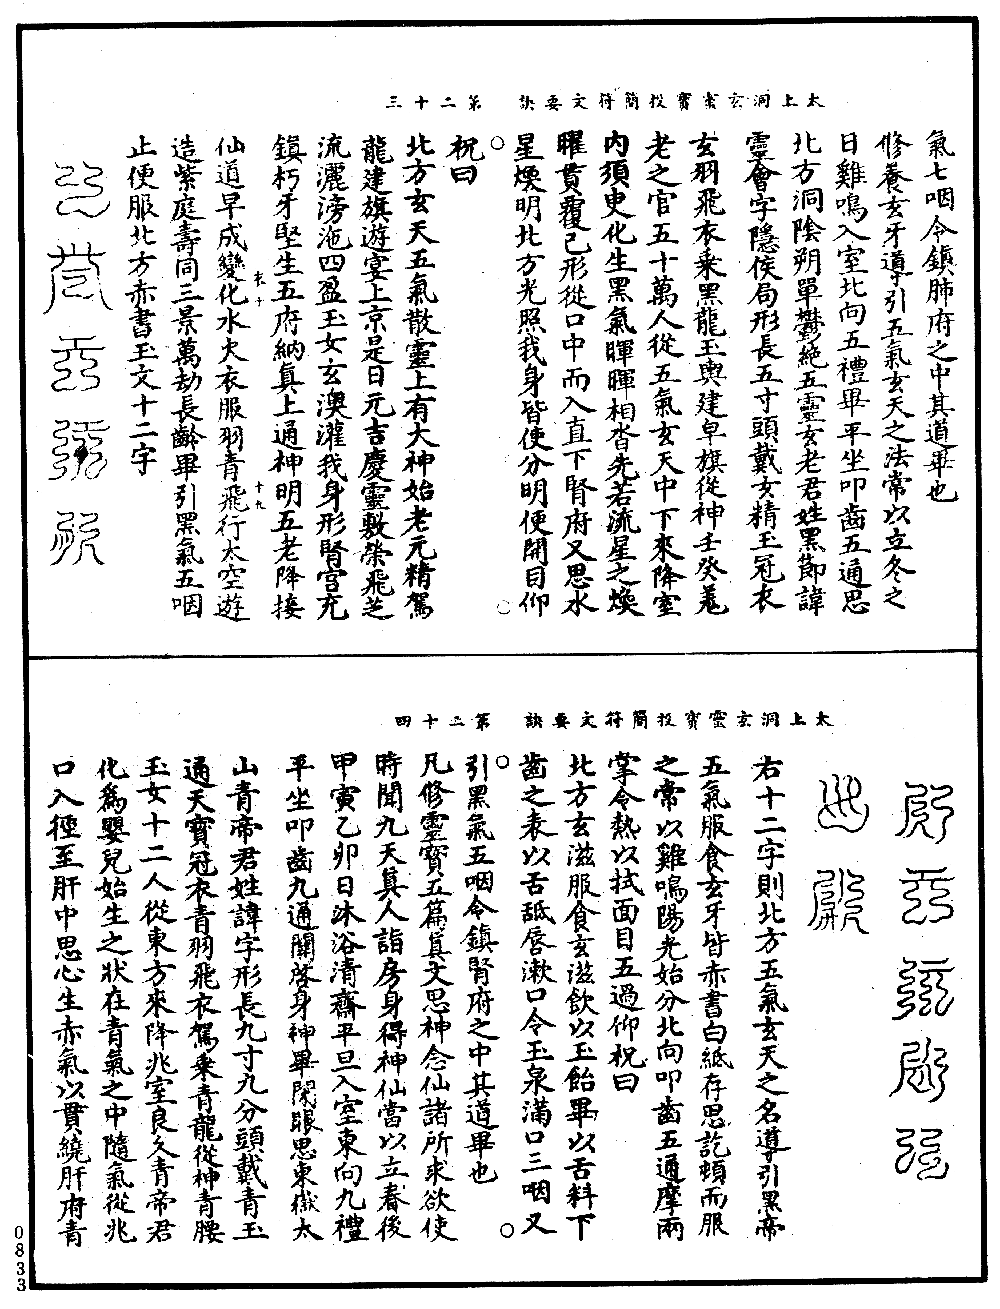 太上洞玄靈寶投簡符文要訣 第二十三
氣七咽令鎮肺府之中其道畢也
修養玄牙導引五氣玄天之法常以立冬之
日雞鳴入室北向五禮畢平坐叩齒五通思
北方洞陰朔單鬱絕五靈玄老君姓黑節諱
靈會字隱侯局形長五寸頭戴玄精玉冠衣
玄羽飛衣乘黑龍玉輿建皁旗從神壬癸菟
老之官五十萬人從五氣玄天中下來降室
內須臾化生黑氣暉暉相沓先若流星之煥
曜貫覆己形從口中而入直下腎府又思水
星煥明北方光照我身皆使分明便開目仰
祝曰
北方玄天五氣散靈上有大神始老元精駕
龍建旗遊宴上京是日元吉慶靈敷榮飛芝
流灑滂沲四盈玉女玄澳灌我身形腎宮充
鎮朽牙堅生五府納真上通神明五老降接
仙道早成變化水火衣服羽青飛行太空遊
衣十
十九
造紫庭壽同三景萬劫長齡畢引黑氣五咽
止便服北方赤書玉文十二字
太上洞玄靈寶投簡符文要訣 第二十四
右十二字則北方五氣玄天之名導引黑帝
五氣服食玄牙皆赤書白紙存思訖頓而服
之常以雞鳴陽光始分北向叩齒五通摩兩
掌令熱以拭面目五過仰祝曰
北方玄滋服食玄滋飲以玉飴畢以舌料下
齒之表以舌舐唇漱口令玉泉滿口三咽又
引黑氣五咽令鎮腎府之中其道畢也
凡修靈寶五篇真文思神念仙諸所求欲使
時聞九天真人詣房身得神仙當以立春後
甲寅乙卯日沐浴清齋平旦入室東向九禮
平坐叩齒九通關啓身神畢閉眼思東嶽太
山青帝君姓諱字形長九寸九分頭戴青玉
通天寶冠衣青羽飛衣駕乘青龍從神青腰
玉女十二人從東方來降兆室良久青帝君
化爲嬰兒始生之狀在青氣之中隨氣從兆
口入徑至肝中思心生赤氣以貫繞肝府青
0833